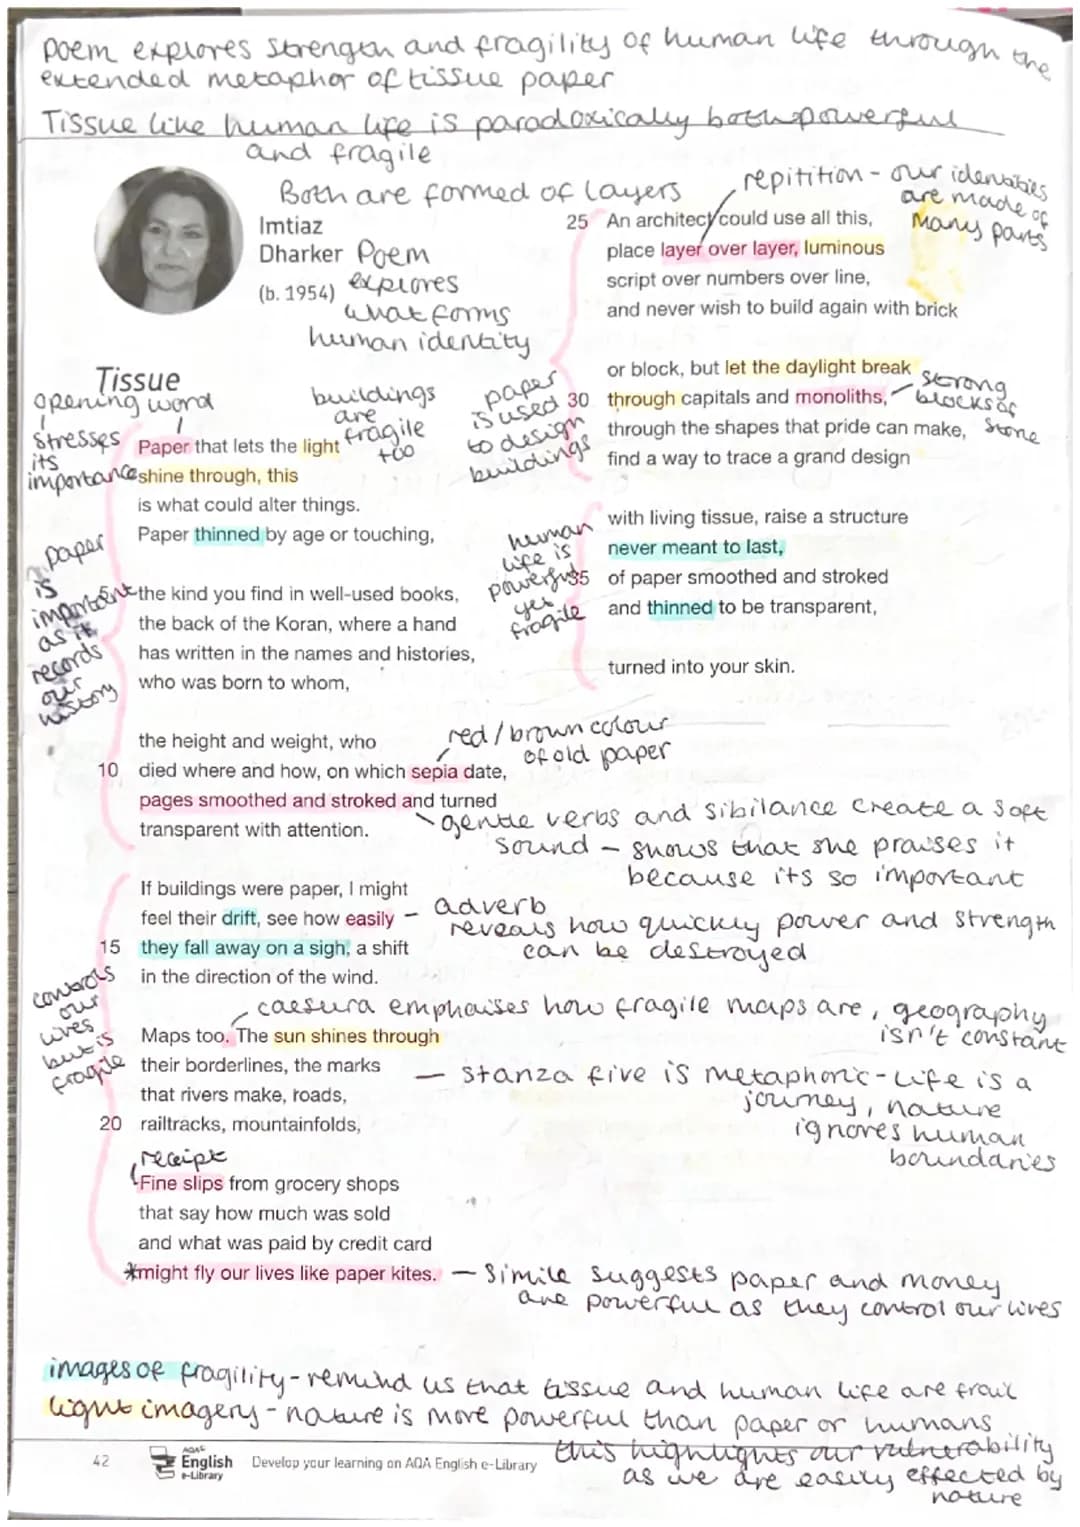 poem explores strength and fragility of human life through the
extended metaphor of tissue paper
Tissue like human life is paradoxically both powerful
and fragile
Both are formed of layers
Imtiaz
Dharker
(b. 1954)
Poem
explores
what forms
human identity
Tissue
opening word
stresses
its
importance
buildings
are
fragile
too
Paper that lets the light
shine through, this
is what could alter things.
Paper thinned by age or touching,
paper
is
important
as it
records
our
history
the kind you find in well-used books,
the back of the Koran, where a hand
has written in the names and histories,
who was born to whom,
the height and weight, who
10 died where and how, on which sepia date,
pages smoothed and stroked and turned
transparent with attention.
red/brown colour
of old paper
gentle verbs and sibilance create a soft
sound - shows that she praises it
because its so important
If buildings were paper, I might
feel their drift, see how easily
15 they fall away on a sigh, a shift
in the direction of the wind.
- adverb
reveals how quickly power and strength
can be destroyed
controls
our
lives
but is
fragile
caesura emphaises how fragile maps are, geography
isn't constant
Maps too. The sun shines through
their borderlines, the marks
that rivers make, roads,
20 railtracks, mountainfolds,
- stanza five is metaphoric - life is a
journey, nature
ignores human
boundaries
receipt
Fine slips from grocery shops
that say how much was sold
and what was paid by credit card
*might fly our lives like paper kites.
- simile suggests paper and money
are powerful as they control our lives
repitition - our identities
are made of
many parts
25 An architect could use all this,
place layer over layer, luminous
script over numbers over line,
and never wish to build again with brick
paper
is used
to design
buildings
or block, but let the daylight break
30 through capitals and monoliths,
through the shapes that pride can make,
find a way to trace a grand design
strong
blocks of
stone
human
life is
powerful
yet
fragile
with living tissue, raise a structure
never meant to last,
35 of paper smoothed and stroked
and thinned to be transparent,
turned into your skin.
images of fragility - remind us that tissue and human life are frail
light imagery - nature is more powerful than paper or humans
this highlights our vulnerability
as we are easily effected by
nature
42
AQA
English
e-Library
Develop your learning on AQA English e-Library